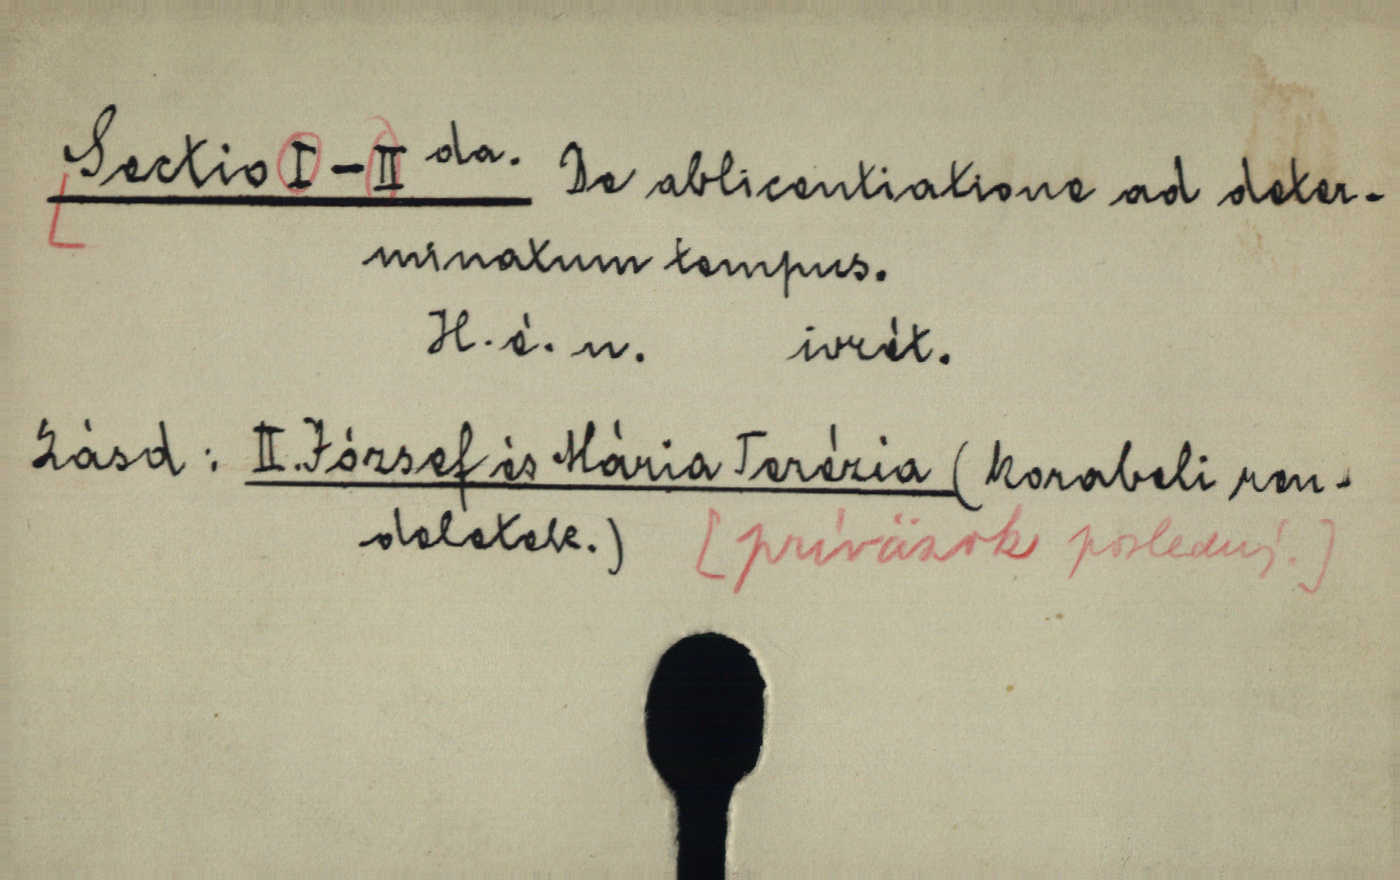 Sectio I-II da. De ablicentiatione ad deter-
minatum tempus.
H. é. n. ivrét.
Lásd: II. József és Mária Terézia (korabeli ren-
deletek.) [prívӓzok posledný.]